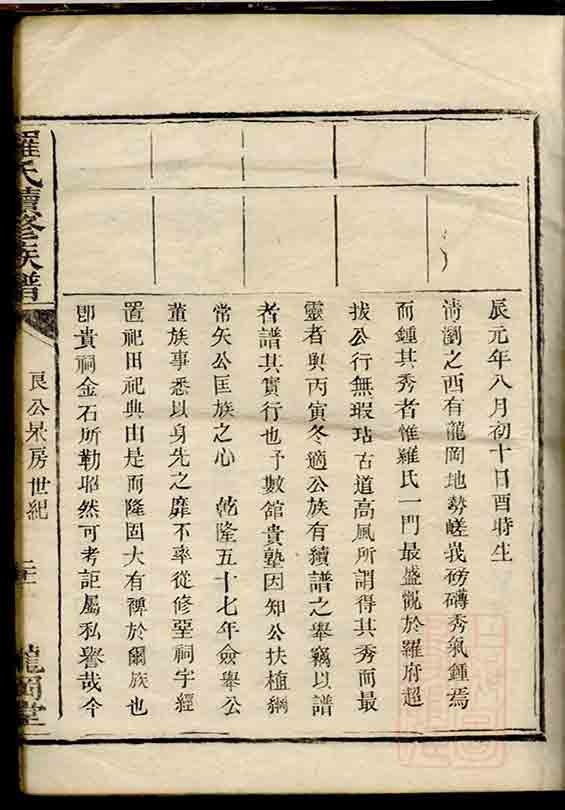 辰元年八月初十日酉時生
淸瀏之西有龍岡地勢嵯峩磅礴秀氣鍾焉
而鍾其秀者惟羅氏一門最盛觀於羅府超
拔公行無瑕玷古道高風所謂得其秀而最
靈者與丙寅冬適公族有續譜之舉竊以譜
者譜其實行也予數館貴塾因知公扶植綱
常矢公匡族之心　乾隆五十七年僉舉公
董族事悉以身先之靡不率從修堊祠宇經
置祀田祀典由是而隆固大有裨於爾族也
卽貴祠金石所勒昭然可考詎屬私譽哉今
羅氏續修族譜
良公杲房世紀
龍岡堂